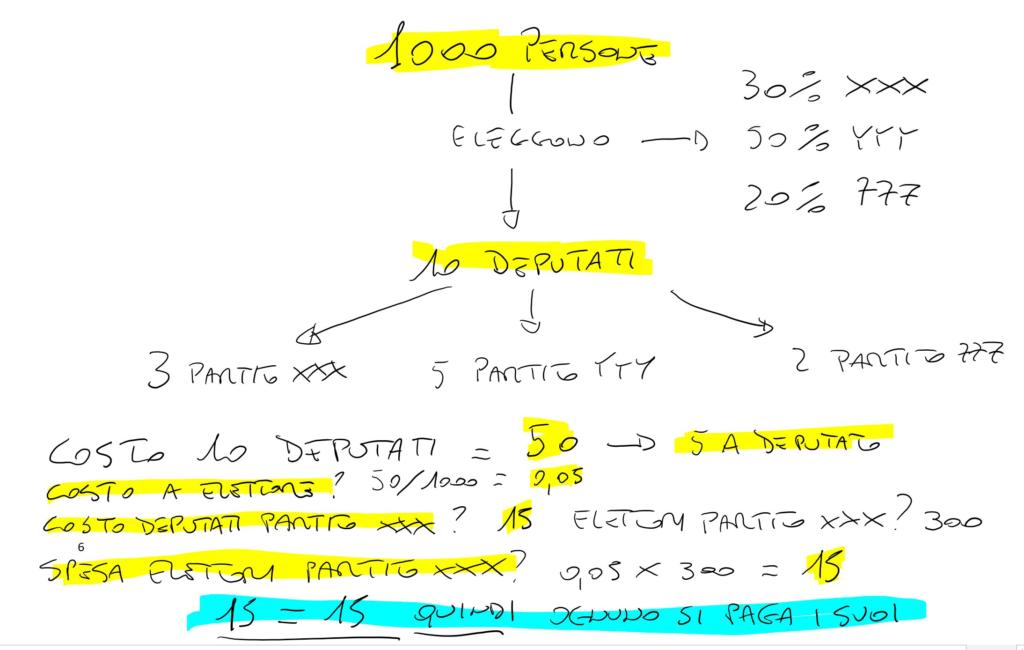 1000 PERSONE
30% XXX
ELEGGONO → 50% YYY
20% 777
10 DEPUTATI
3 PARTITO XXX 5 PARTITO YYY 2 PARTITO 777
COSTO 10 DEPUTATI = 50 → 5 A DEPUTATO
COSTO A ELETTORE? 50/1000 = 0,05
COSTO DEPUTATI PARTITO XXX? 15 ELETTORI PARTITO XXX? 300
6
SPESA ELETTORI PARTITO XXX? 0,05 x 300 = 15
15 = 15 QUINDI OGNUNO SI PAGA I SUOI